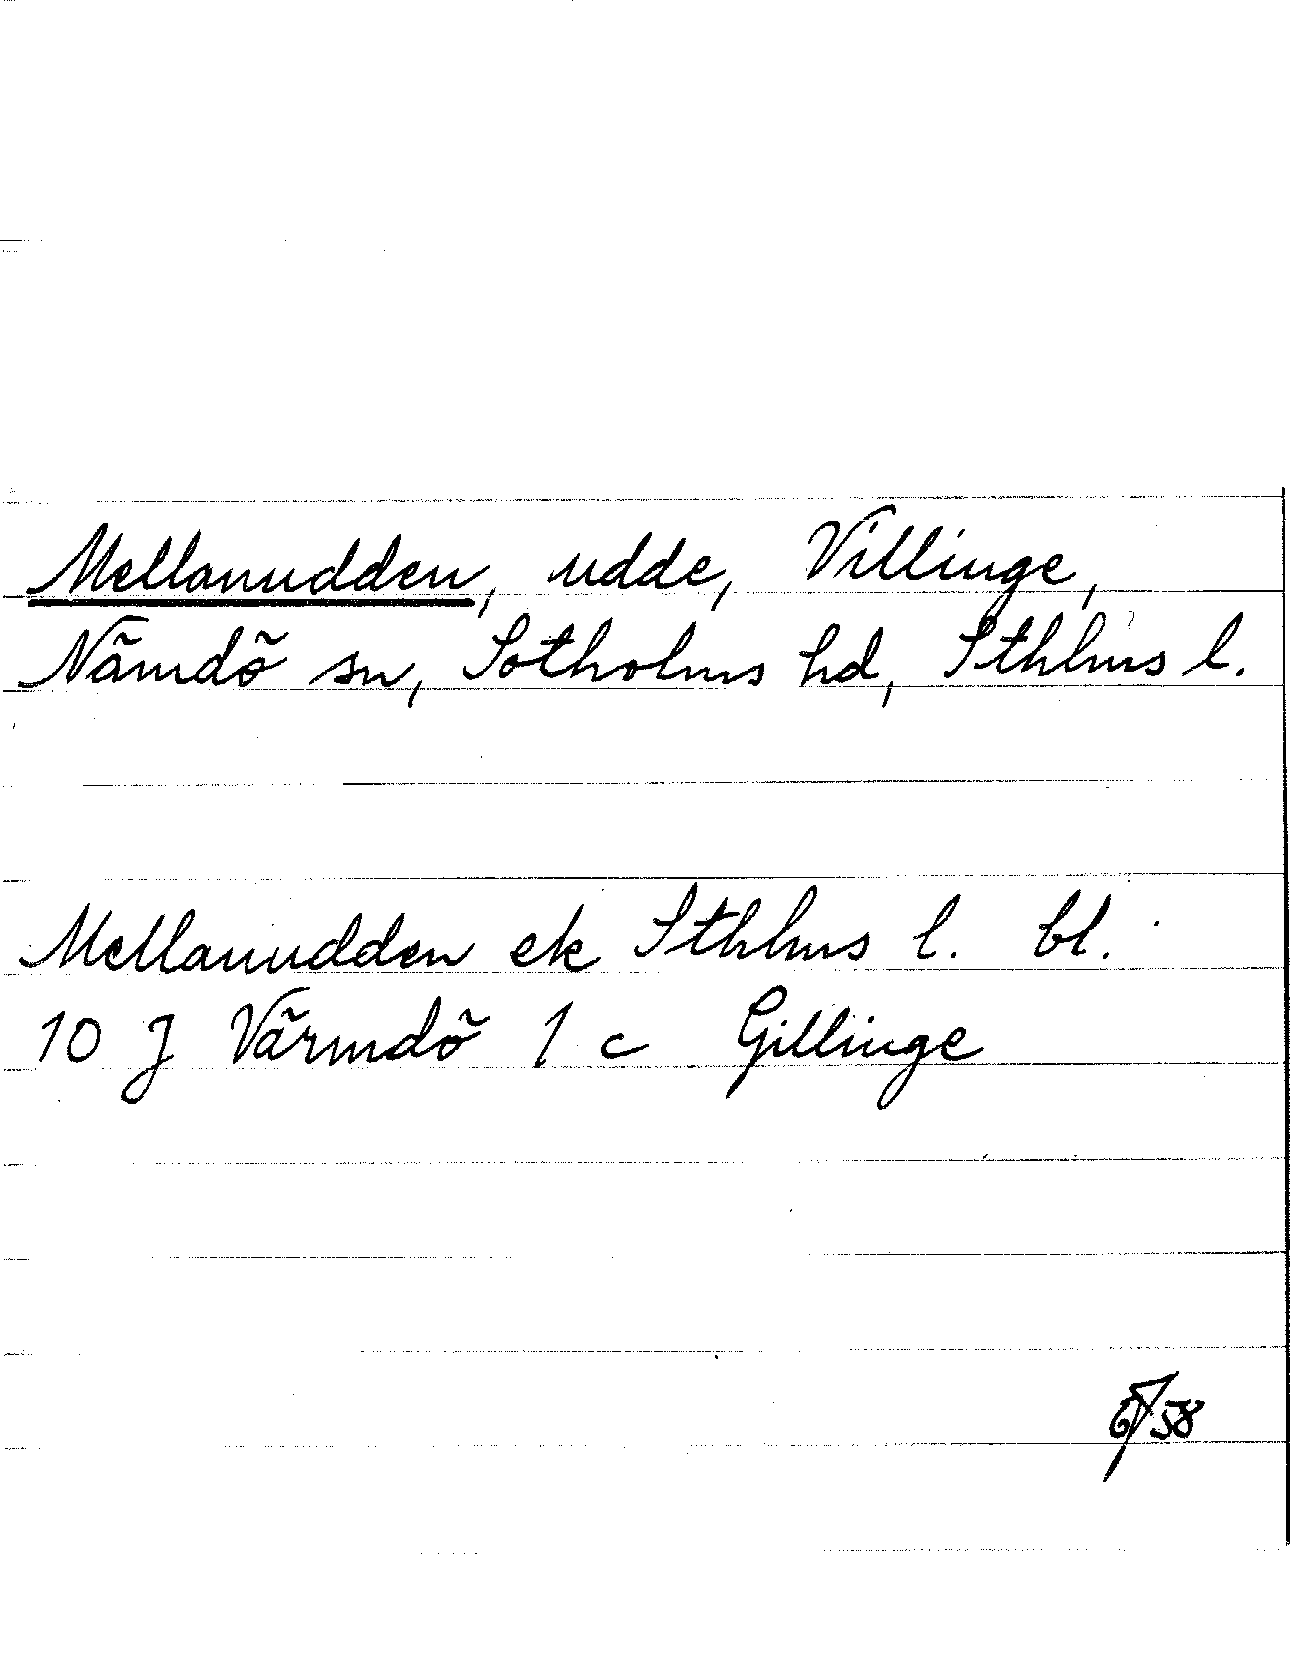 Mellanudden, udde, Villinge,
Nämdö sn, Sotholms hd, Sthlms l.
Mellanudden ek Sthlms l. bl.
10 J Värmdö 1 c Gillinge
58